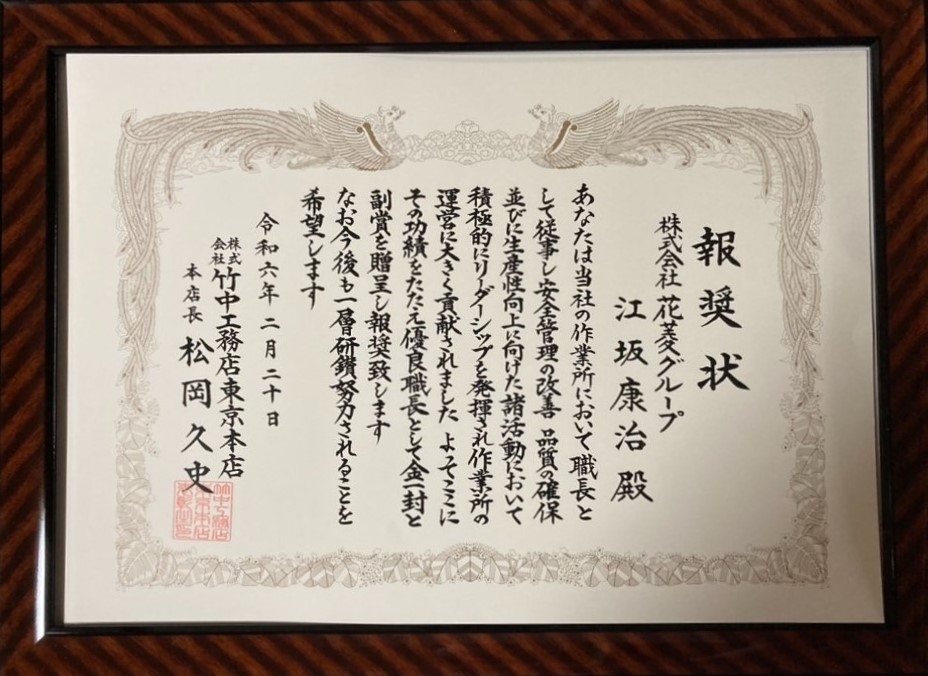 報奨状
株式会社 花菱グループ
江坂康治 殿
あなたは当社の作業所において 職長と
して従事し安全管理の改善 品質の確保
並びに生産性向上に向けた諸活動において
積極的にリーダーシップを発揮され作業所の
運営に大きく貢献されました よってここに
その功績をたたえ優良職長として金一封と
副賞を贈呈し報奨致します
なお今後も一層研鑽努力されることを
希望します
令和六年 二月二十日
株式会社 竹中工務店東京本店
本店長 松岡久史